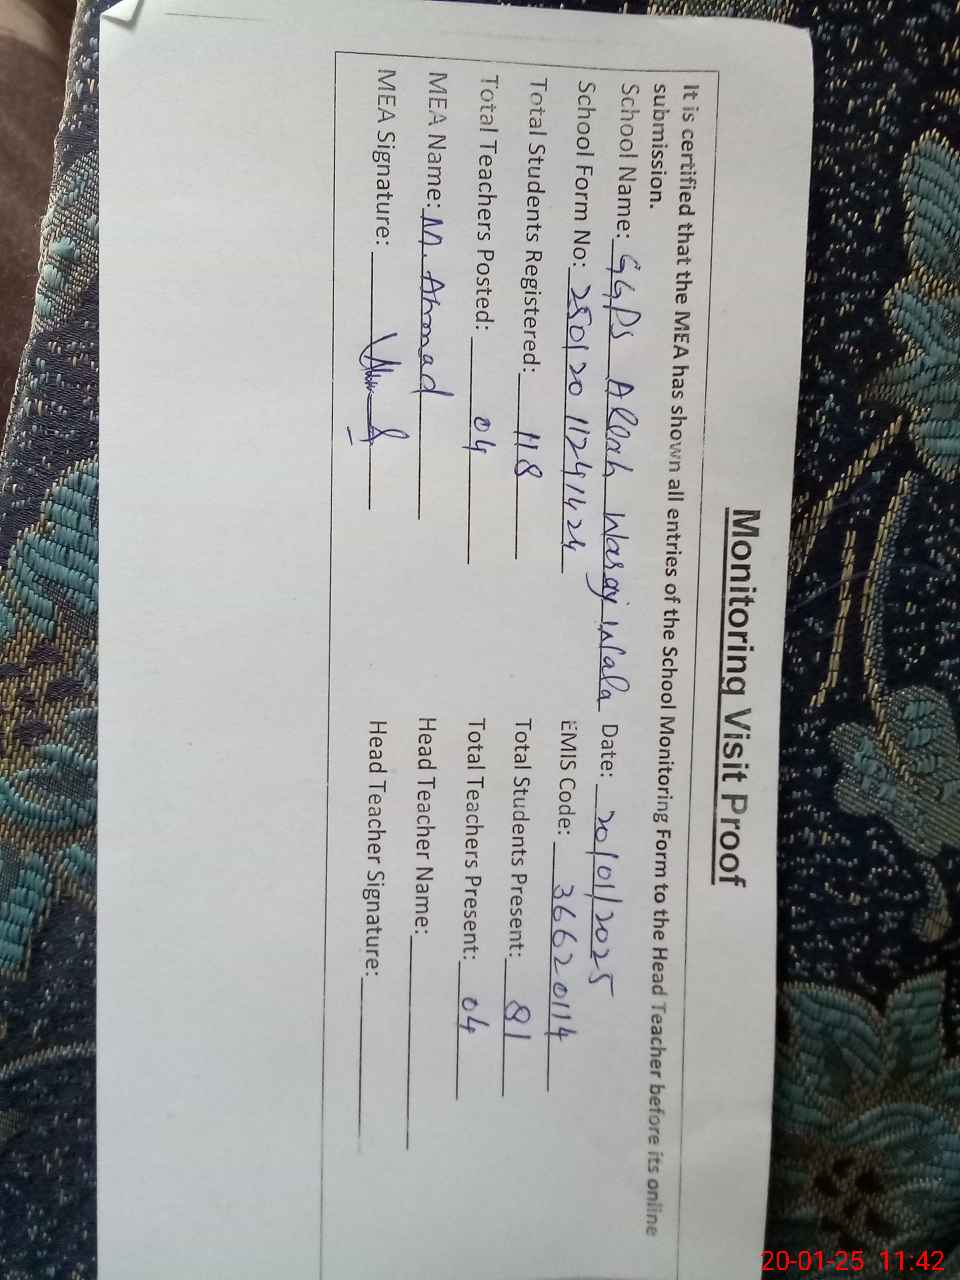 Monitoring Visit Proof
It is certified that the MEA has shown all entries of the School Monitoring Form to the Head Teacher before its online
submission.
School Name: GGPS Allah Wasay Wala Date: 20/01/2025
School Form No: 250120 11241424 EMIS Code: 36620114
Total Students Registered: 118 Total Students Present: 81
Total Teachers Posted: 04 Total Teachers Present: 04
MEA Name: M. Ahmad Head Teacher Name:
MEA Signature: Head Teacher Signature:
20-01-25 11:42